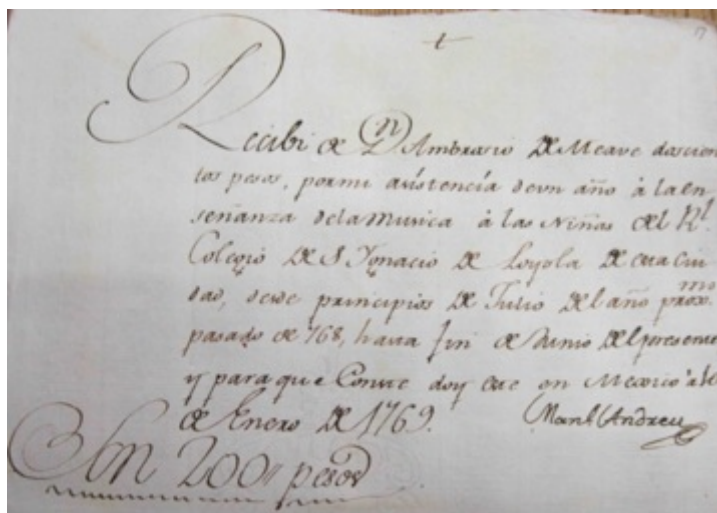 Recibi de Dn Ambrosio de Meave doscien
tos pesos, por mi asistencia de un año à la en
señanza de la Musica à las Niñas del Rl.
Colegio de S Ygnacio de Loyola de esta Ciu
dad, desde principios de Julio del año proxmo.
pasado de 768, hasta fin de Junio del presente
y para que Conste doy este en Mexico à
de Enero de 1769. Manl Andreu
Son 200 pesos